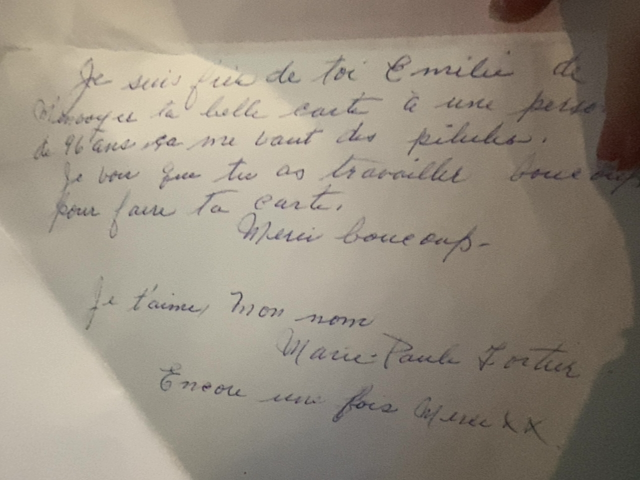 Je suis fière de toi Emilie de
M'envoyer ta belle carte à une perso
de 96 ans ça me vaut des pilules.
Je vois que tu as travailler boucoup
pour faire ta carte.
Merci boucoup-
Je t'aime, Mon nom
Marie-Paule Fortier
Encore une fois Merci XX